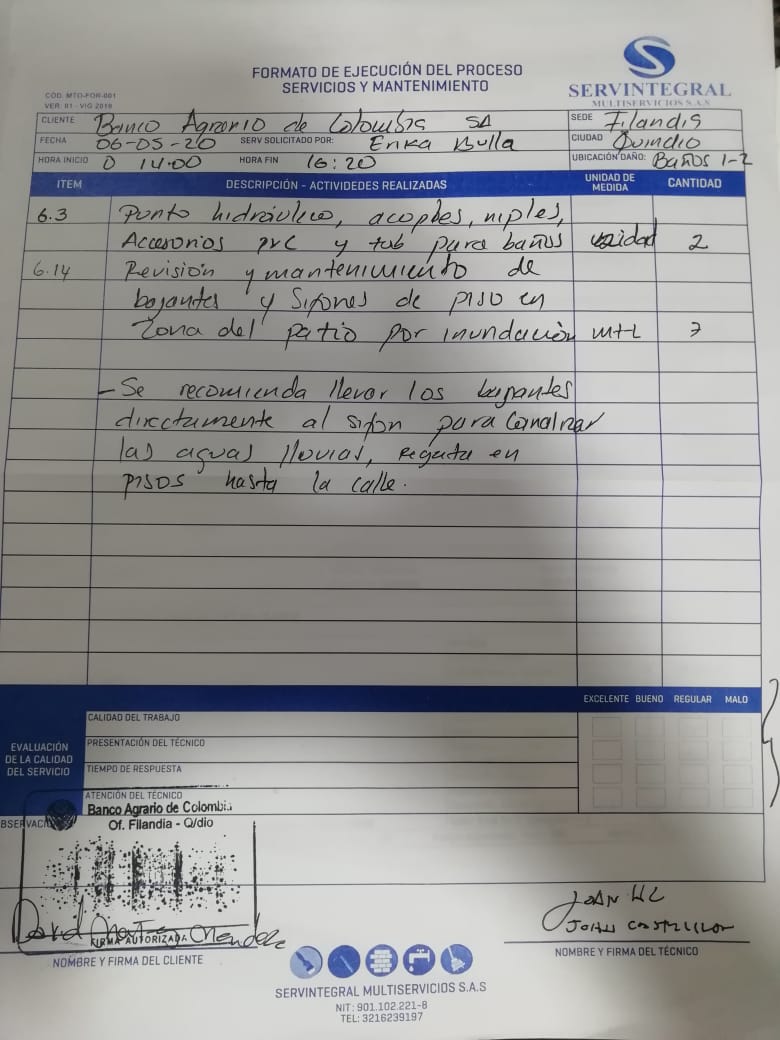 FORMATO DE EJECUCIÓN DEL PROCESO
SERVICIOS Y MANTENIMIENTO
SERVINTEGRAL
MULTISERVICIOS S.A.S
COD. MTO-FOR-001
VER. 01 - VIG 2019
CLIENTE Banco Agrario de Colombia SA SEDE Filandia
FECHA 06-05-20 SERV SOLICITADO POR: Erika Bulla CIUDAD Quindio
HORA INICIO 14:00 HORA FIN 16:20 UBICACIÓN DAÑO: Baños 1-2
ITEM DESCRIPCIÓN - ACTIVIDEDES REALIZADAS UNIDAD DE MEDIDA CANTIDAD
6.3 Punto hidráulico, acoples, niples,
Accesorios pvc y tub para baños unidad 2
6.14 Revisión y mantenimiento de
bajantes y Sifones de piso en
Zona del patio por inundación mtL 7
- Se recomienda llevar los bajantes
directamente al sifon para Canalizar
las aguas lluvias, en
pisos hasta la calle.
EXCELENTE BUENO REGULAR MALO
EVALUACIÓN
DE LA CALIDAD
DEL SERVICIO
CALIDAD DEL TRABAJO
PRESENTACIÓN DEL TÉCNICO
TIEMPO DE RESPUESTA
ATENCIÓN DEL TÉCNICO
Banco Agrario de Colombia
Of. Filandia - Q/dio
BSERVACI
David Mendez
FIRMA AUTORIZADA
NOMBRE Y FIRMA DEL CLIENTE
JOAN
NOMBRE Y FIRMA DEL TÉCNICO
SERVINTEGRAL MULTISERVICIOS S.A.S
NIT: 901.102.221-8
TEL: 3216239197